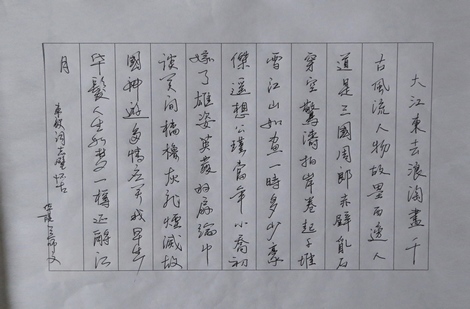 大江東去浪淘盡千
古風流人物故壘西邊人
道是三國周郎赤壁亂石
穿空驚濤拍岸卷起千堆
雪江山如畫一時多少豪
傑遥想公瑾當年小喬初
嫁了雄姿英發羽扇綸巾
談笑間檣櫓灰飛煙滅故
國神遊多情应笑我早生
华髮人生如梦一樽还酹江
月 東坡词赤壁怀古